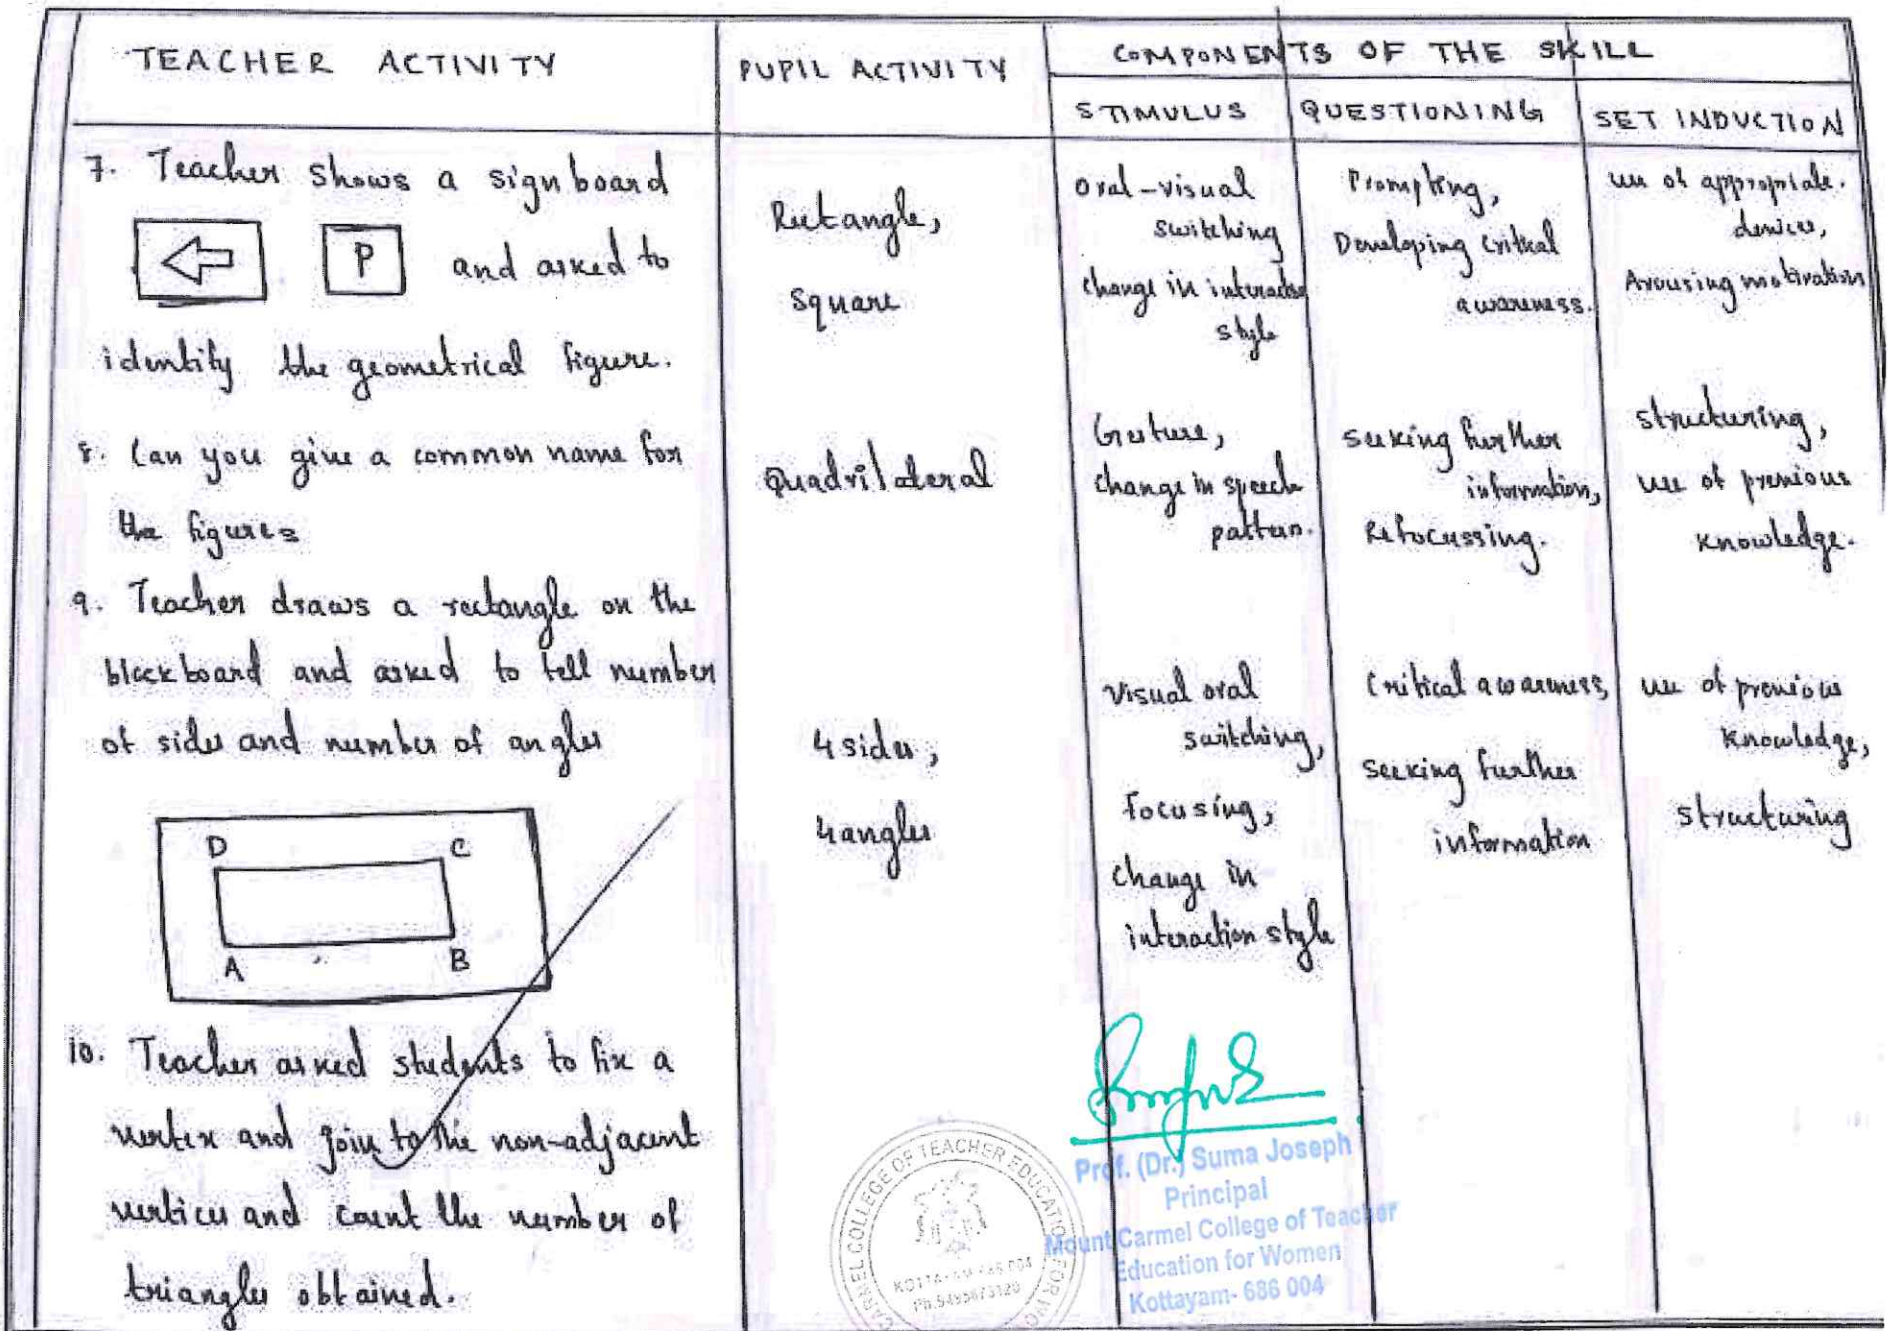 TEACHER ACTIVITY
PUPIL ACTIVITY
COMPONENTS OF THE SKILL
STIMULUS
QUESTIONING
SET INDUCTION
7. Teacher shows a sign board
P and asked to
identify the geometrical figure.
Rectangle,
Square
Oral-visual
switching
change in interaction
style
Prompting,
Developing critical
awareness.
use of appropriate.
devices,
Arousing motivation
8. Can you give a common name for
the figures
Quadrilateral
Gesture,
change in speech
pattern.
Seeking further
information,
Refocussing.
structuring,
use of previous
knowledge.
9. Teacher draws a rectangle on the
blackboard and asked to tell number
of sides and number of angles
D C
A B
4 sides,
4 angles
Visual oral
switching,
Focusing,
change in
interaction style
Critical awareness,
Seeking further
information
use of previous
knowledge,
structuring
10. Teacher asked students to fix a
vertex and join to the non-adjacent
vertices and count the number of
triangles obtained.
CARMEL COLLEGE OF TEACHER EDUCATION FOR WO
Prof. (Dr.) Suma Joseph
Principal
Mount Carmel College of Teacher
Education for Women
Kottayam- 686 004